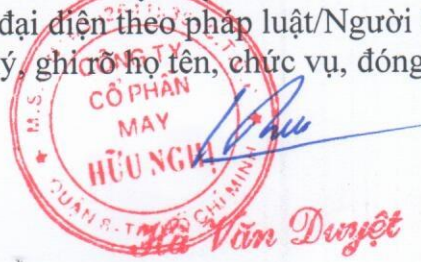 đại diện theo pháp luật/Người
ý, ghi rõ họ tên, chức vụ, đóng
CÔNG TY
CỔ PHẦN
MAY
HỮU NGHỊ
QUẬN 8 - T.P HỒ CHÍ MINH
Hà Văn Duyệt